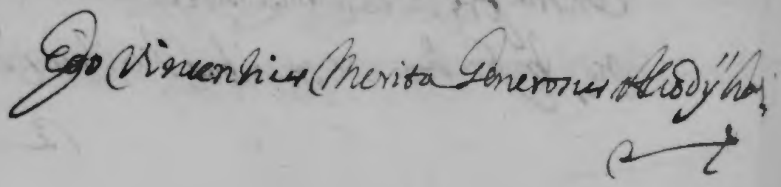 Ego Vincentius Merita Generosus